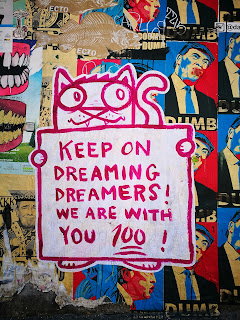 ECTO
ECTO
DUMB
KEEP ON
DREAMING
DREAMERS!
WE ARE WITH
YOU 100 !
DUMB
DUMB
DUMB